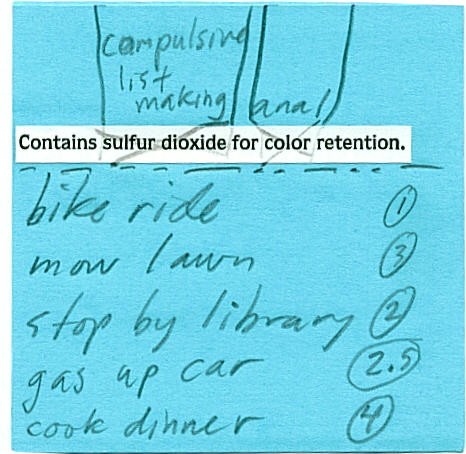 compulsive
list
making anal
Contains sulfur dioxide for color retention.
bike ride 1
mow lawn 3
stop by library 2
gas up car 2.5
cook dinner 4